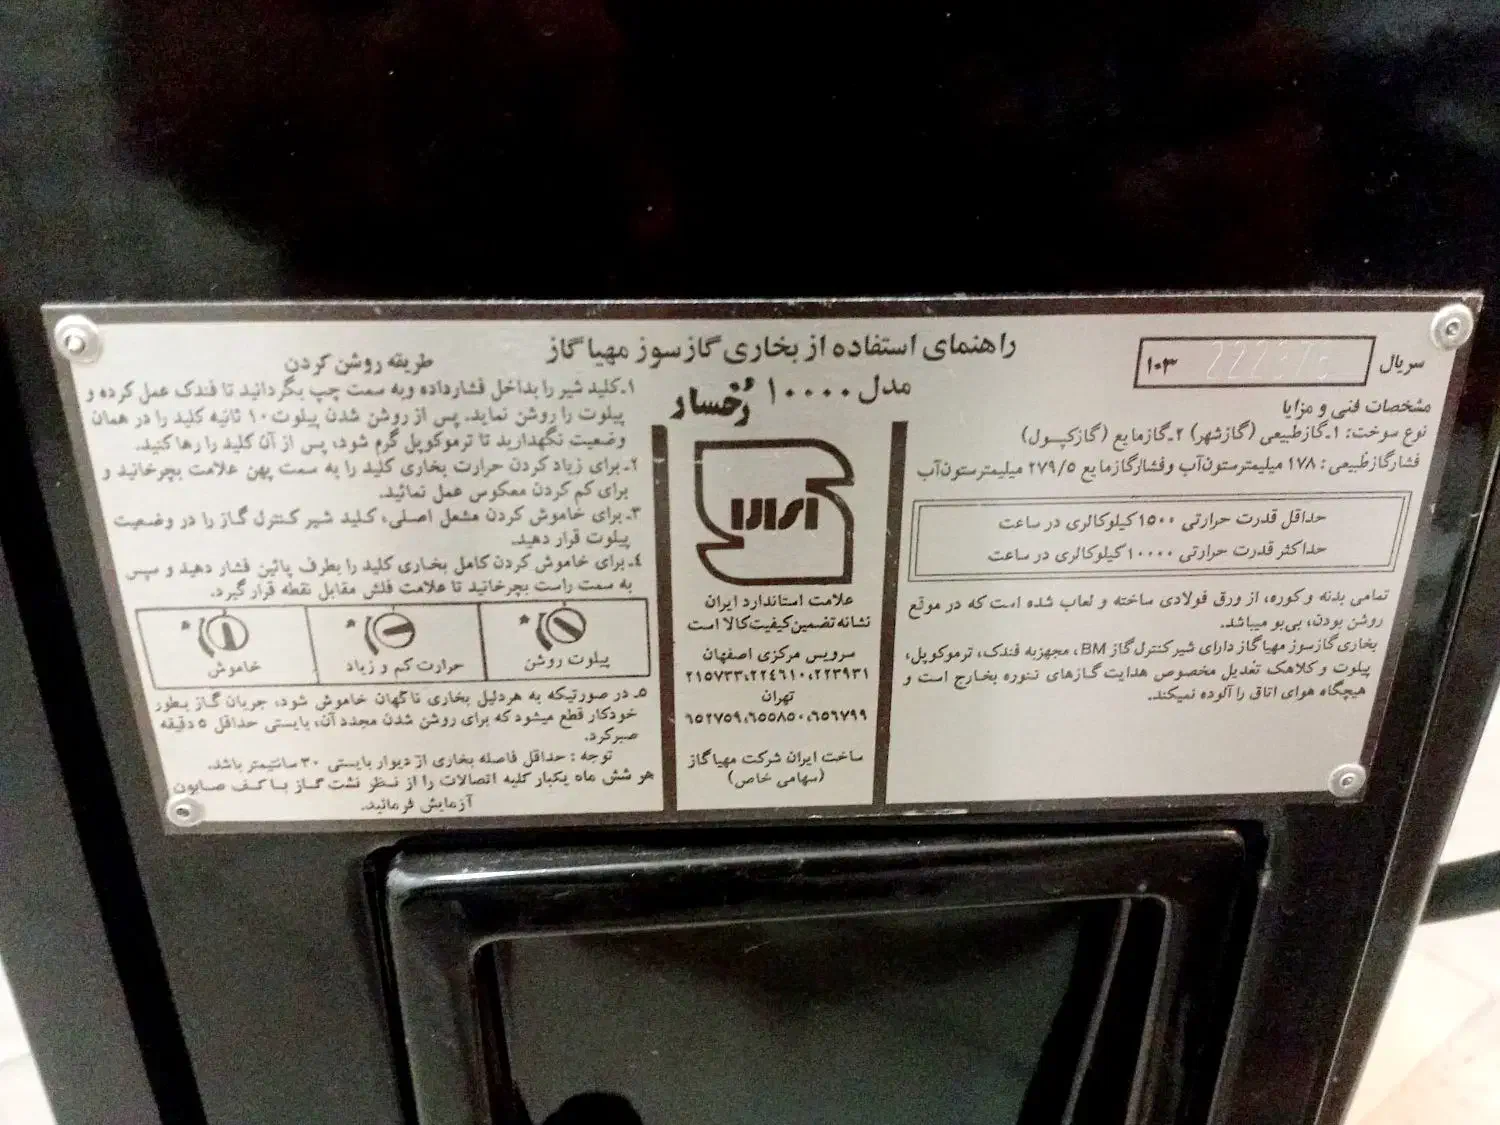 راهنمای استفاده از بخاری گازسوز مهیا گاز
مدل ۱۰۰۰۰ رُخسار
سریال
۱۰۳
مشخصات فنی و مزایا
نوع سوخت: ۱ـ گاز طبیعی (گاز شهر) ۲ـ گاز مایع (گاز کپسول)
فشار گاز طبیعی: ۱۷۸ میلیمتر ستون آب و فشار گاز مایع ۲۷۹/۵ میلیمتر ستون آب
حداقل قدرت حرارتی ۱۵۰۰ کیلوکالری در ساعت
حداکثر قدرت حرارتی ۱۰۰۰۰ کیلوکالری در ساعت
تمامی بدنه و کوره، از ورق فولادی ساخته و لعاب شده است که در موقع
روشن بودن، بی‌بو میباشد.
بخاری گازسوز مهیا گاز دارای شیر کنترل گاز BM، مجهز به فندک، ترموکوپل،
پیلوت و کلاهک تعدیل مخصوص هدایت گازهای تنوره بخارج است و
هیچگاه هوای اتاق را آلوده نمیکند.
علامت استاندارد ایران
نشانه تضمین کیفیت کالا است
سرویس مرکزی اصفهان
۲۱۵۷۳۳،۲۲۴۶۱۰،۲۲۳۹۳۱
تهران
۶۵۲۷۵۹،۶۵۵۸۵۰،۶۵۶۷۹۹
ساخت ایران شرکت مهیا گاز
(سهامی خاص)
طریقه روشن کردن
۱ـ کلید شیر را بداخل فشار داده و به سمت چپ بگردانید تا فندک عمل کرده و
پیلوت را روشن نماید. پس از روشن شدن پیلوت ۱۰ ثانیه کلید را در همان
وضعیت نگهدارید تا ترموکوپل گرم شود، پس از آن کلید را رها کنید.
۲ـ برای زیاد کردن حرارت بخاری کلید را به سمت پهن علامت بچرخانید و
برای کم کردن معکوس عمل نمائید.
۳ـ برای خاموش کردن مشعل اصلی، کلید شیر کنترل گاز را در وضعیت
پیلوت قرار دهید.
۴ـ برای خاموش کردن کامل بخاری کلید را بطرف پائین فشار دهید و سپس
به سمت راست بچرخانید تا علامت فلش مقابل نقطه قرار گیرد.
پیلوت روشن
حرارت کم و زیاد
خاموش
۵ـ در صورتیکه به هر دلیل بخاری ناگهان خاموش شود، جریان گاز بطور
خودکار قطع میشود که برای روشن شدن مجدد آن، بایستی حداقل ۵ دقیقه
صبر کرد.
توجه: حداقل فاصله بخاری از دیوار بایستی ۳۰ سانتیمتر باشد.
هر شش ماه یکبار کلیه اتصالات را از نظر نشت گاز با کف صابون
آزمایش فرمائید.